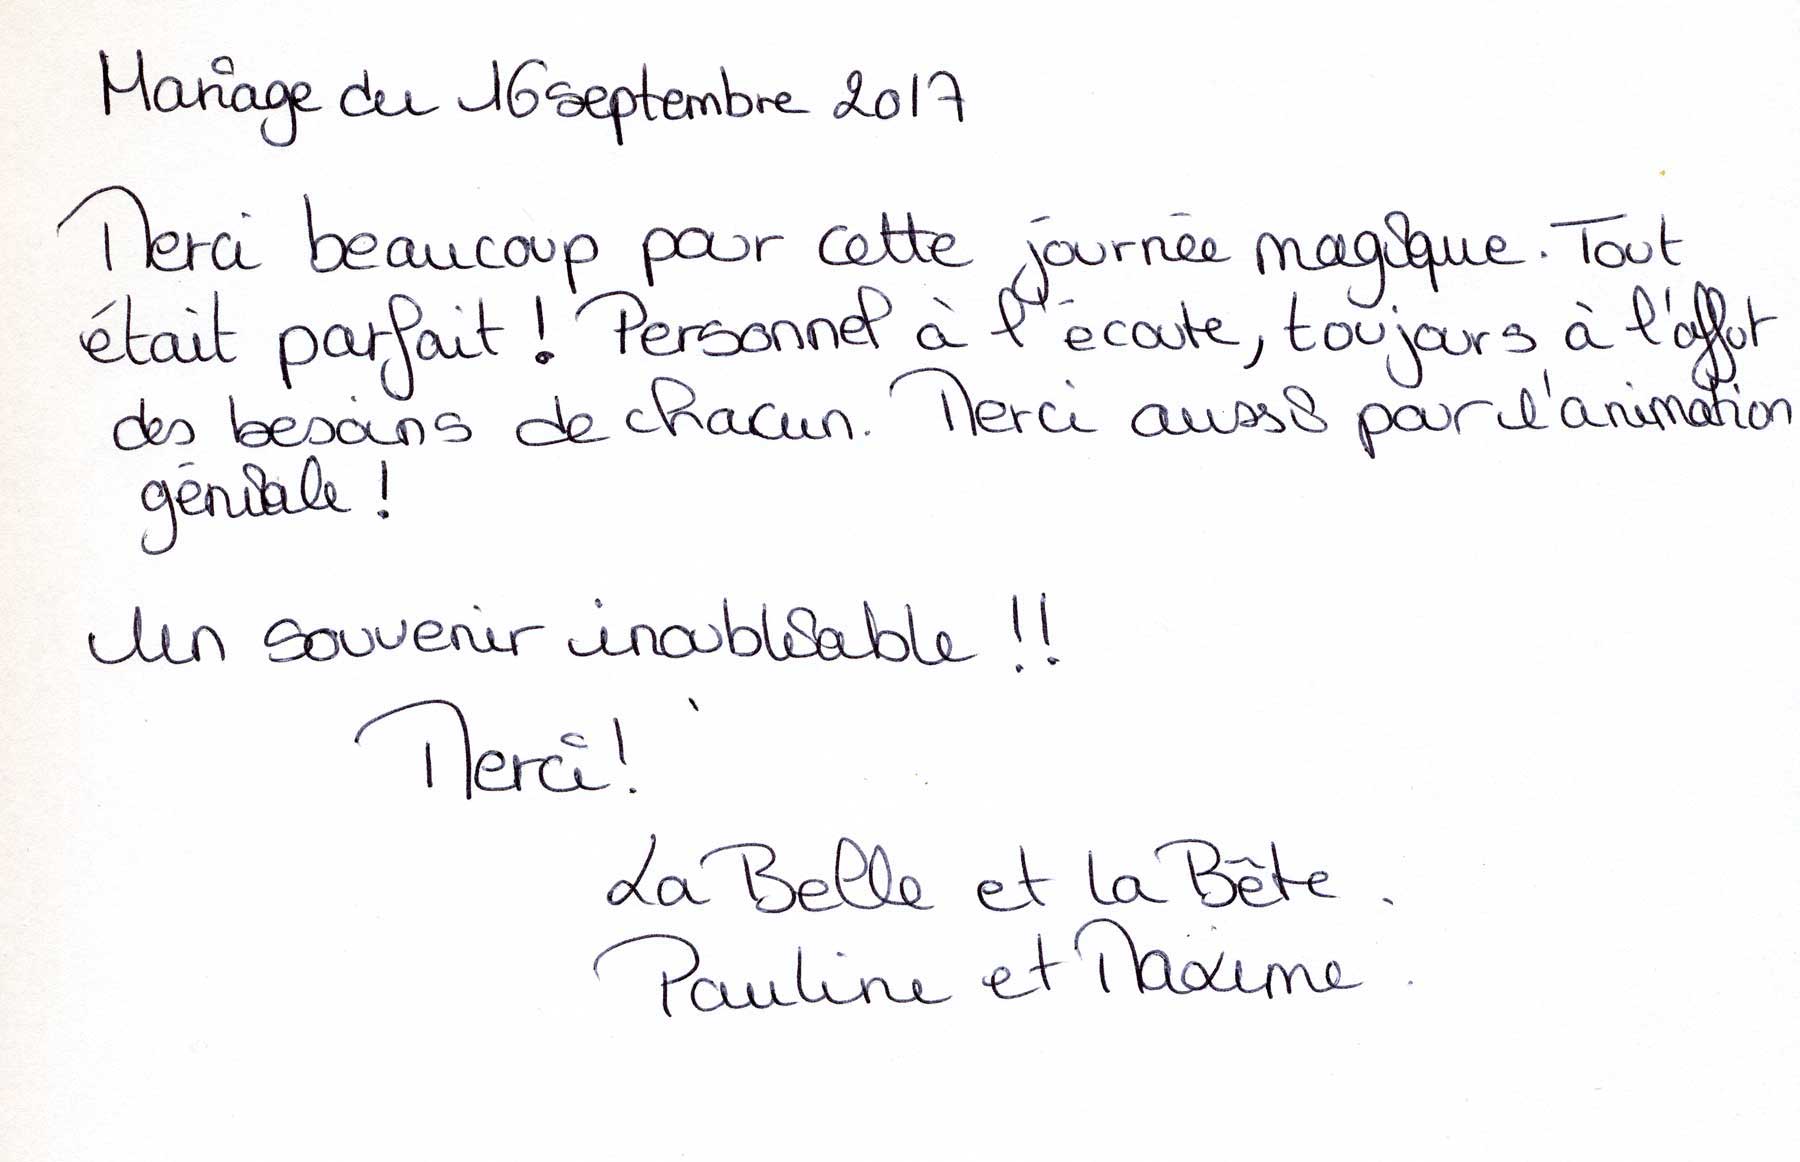 Mariage du 16 septembre 2017
Merci beaucoup pour cette journée magique. Tout
était parfait ! Personnel à l'écoute, toujours à l'affut
des besoins de chacun. Merci aussi pour l'animation
géniale !
Un souvenir inoubliable !!
Merci !
La Belle et la Bête.
Pauline et Maxime.